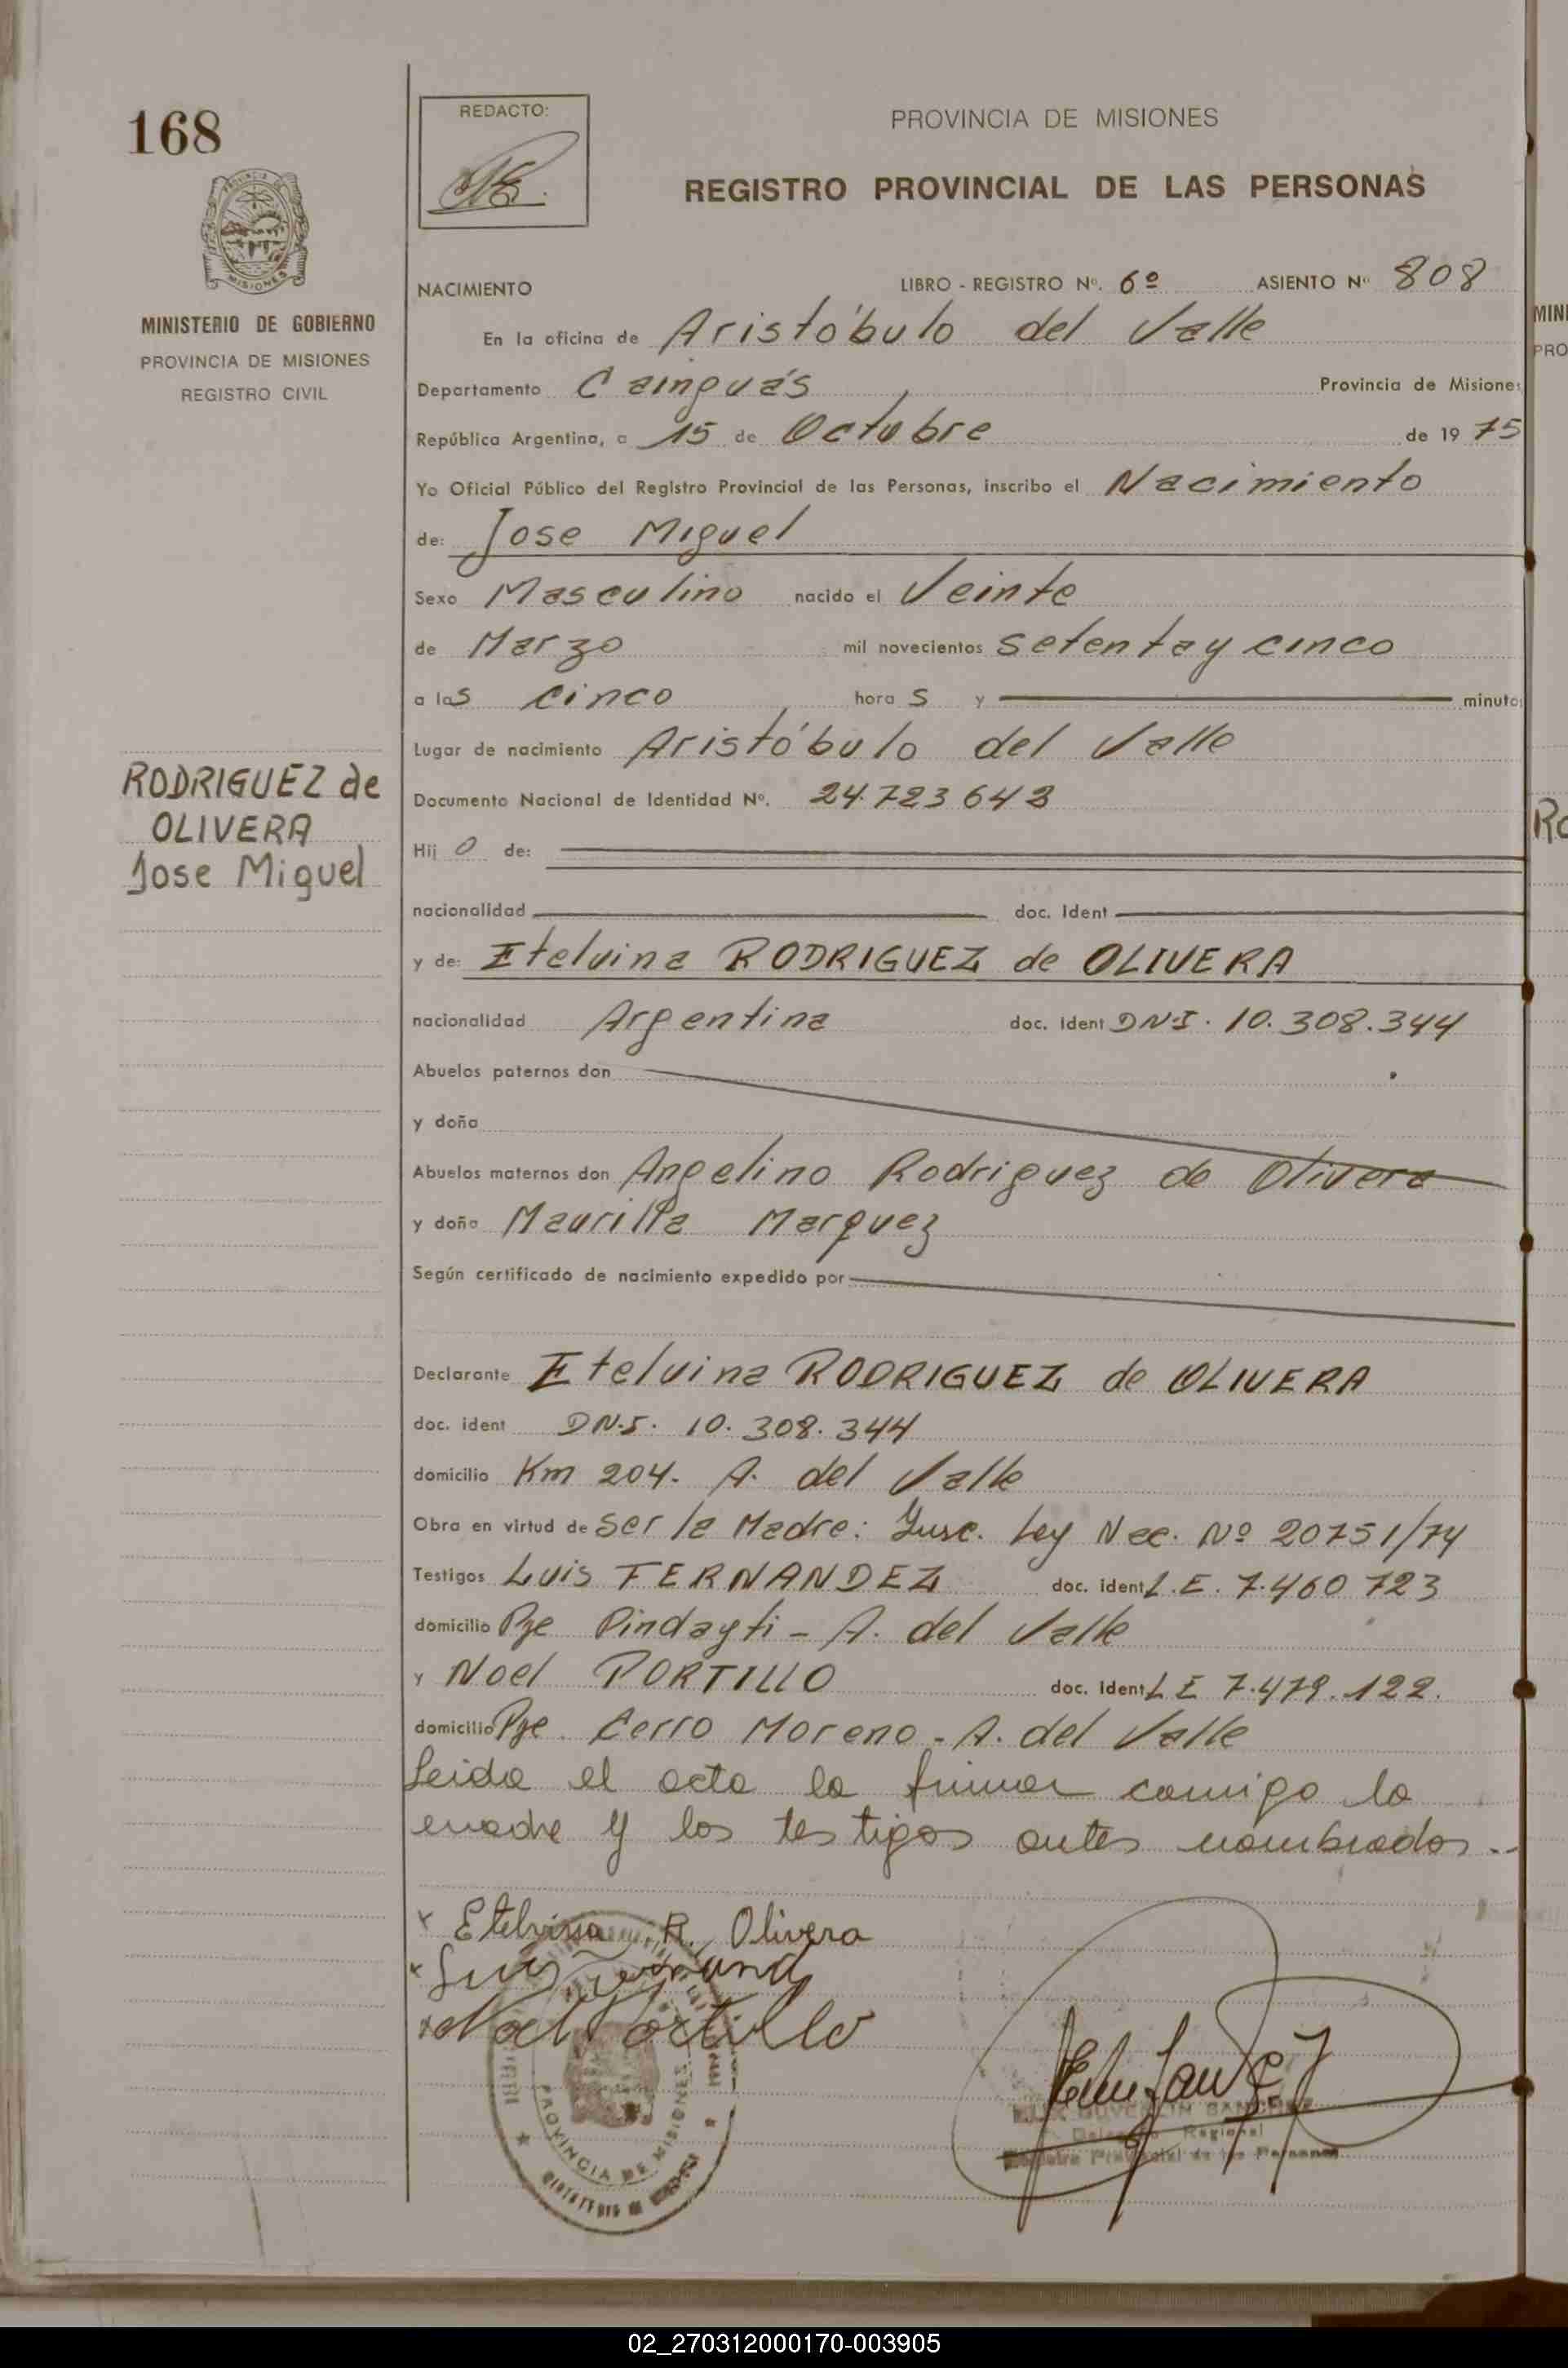 168
REDACTO:
PROVINCIA DE MISIONES
REGISTRO PROVINCIAL DE LAS PERSONAS
MINISTERIO DE GOBIERNO
PROVINCIA DE MISIONES
REGISTRO CIVIL
NACIMIENTO LIBRO - REGISTRO Nº. 6º ASIENTO Nº 808
En la oficina de Aristóbulo del Valle
Departamento Cainguás Provincia de Misiones
República Argentina, a 15 de Octubre de 1975
Yo Oficial Público del Registro Provincial de las Personas, inscribo el Nacimiento
de: Jose Miguel
Sexo Masculino nacido el Veinte
de Marzo mil novecientos setenta y cinco
a las cinco horas y minutos
Lugar de nacimiento Aristóbulo del Valle
RODRIGUEZ de
OLIVERA
Jose Miguel
Documento Nacional de Identidad Nº. 24.723643
Hijo de:
nacionalidad doc. Ident
y de: Etelvina RODRIGUEZ de OLIVERA
nacionalidad Argentina doc. Ident DNI. 10.308.344
Abuelos paternos don
y doña
Abuelos maternos don Angelino Rodriguez de Olivera
y doña Maurilia Marquez
Según certificado de nacimiento expedido por
Declarante Etelvina RODRIGUEZ de OLIVERA
doc. ident DN.I. 10.308.344
domicilio Km 204. A. del Valle
Obra en virtud de ser la Madre: Insc. Ley Nac. Nº 20751/74
Testigos Luis FERNANDEZ doc. ident L.E. 7.460723
domicilio Pje Pindayti - A. del Valle
y Noel PORTILLO doc. Ident LE 7.479.122.
domicilio Pje. Cerro Moreno - A. del Valle
Leida el acta la firman comigo la
madre y los testigos antes nombrados.-
x Etelvina R. Olivera
x Luis
Noel Portillo
PROVINCIA DE MISIONES
Regional
02_270312000170-003905